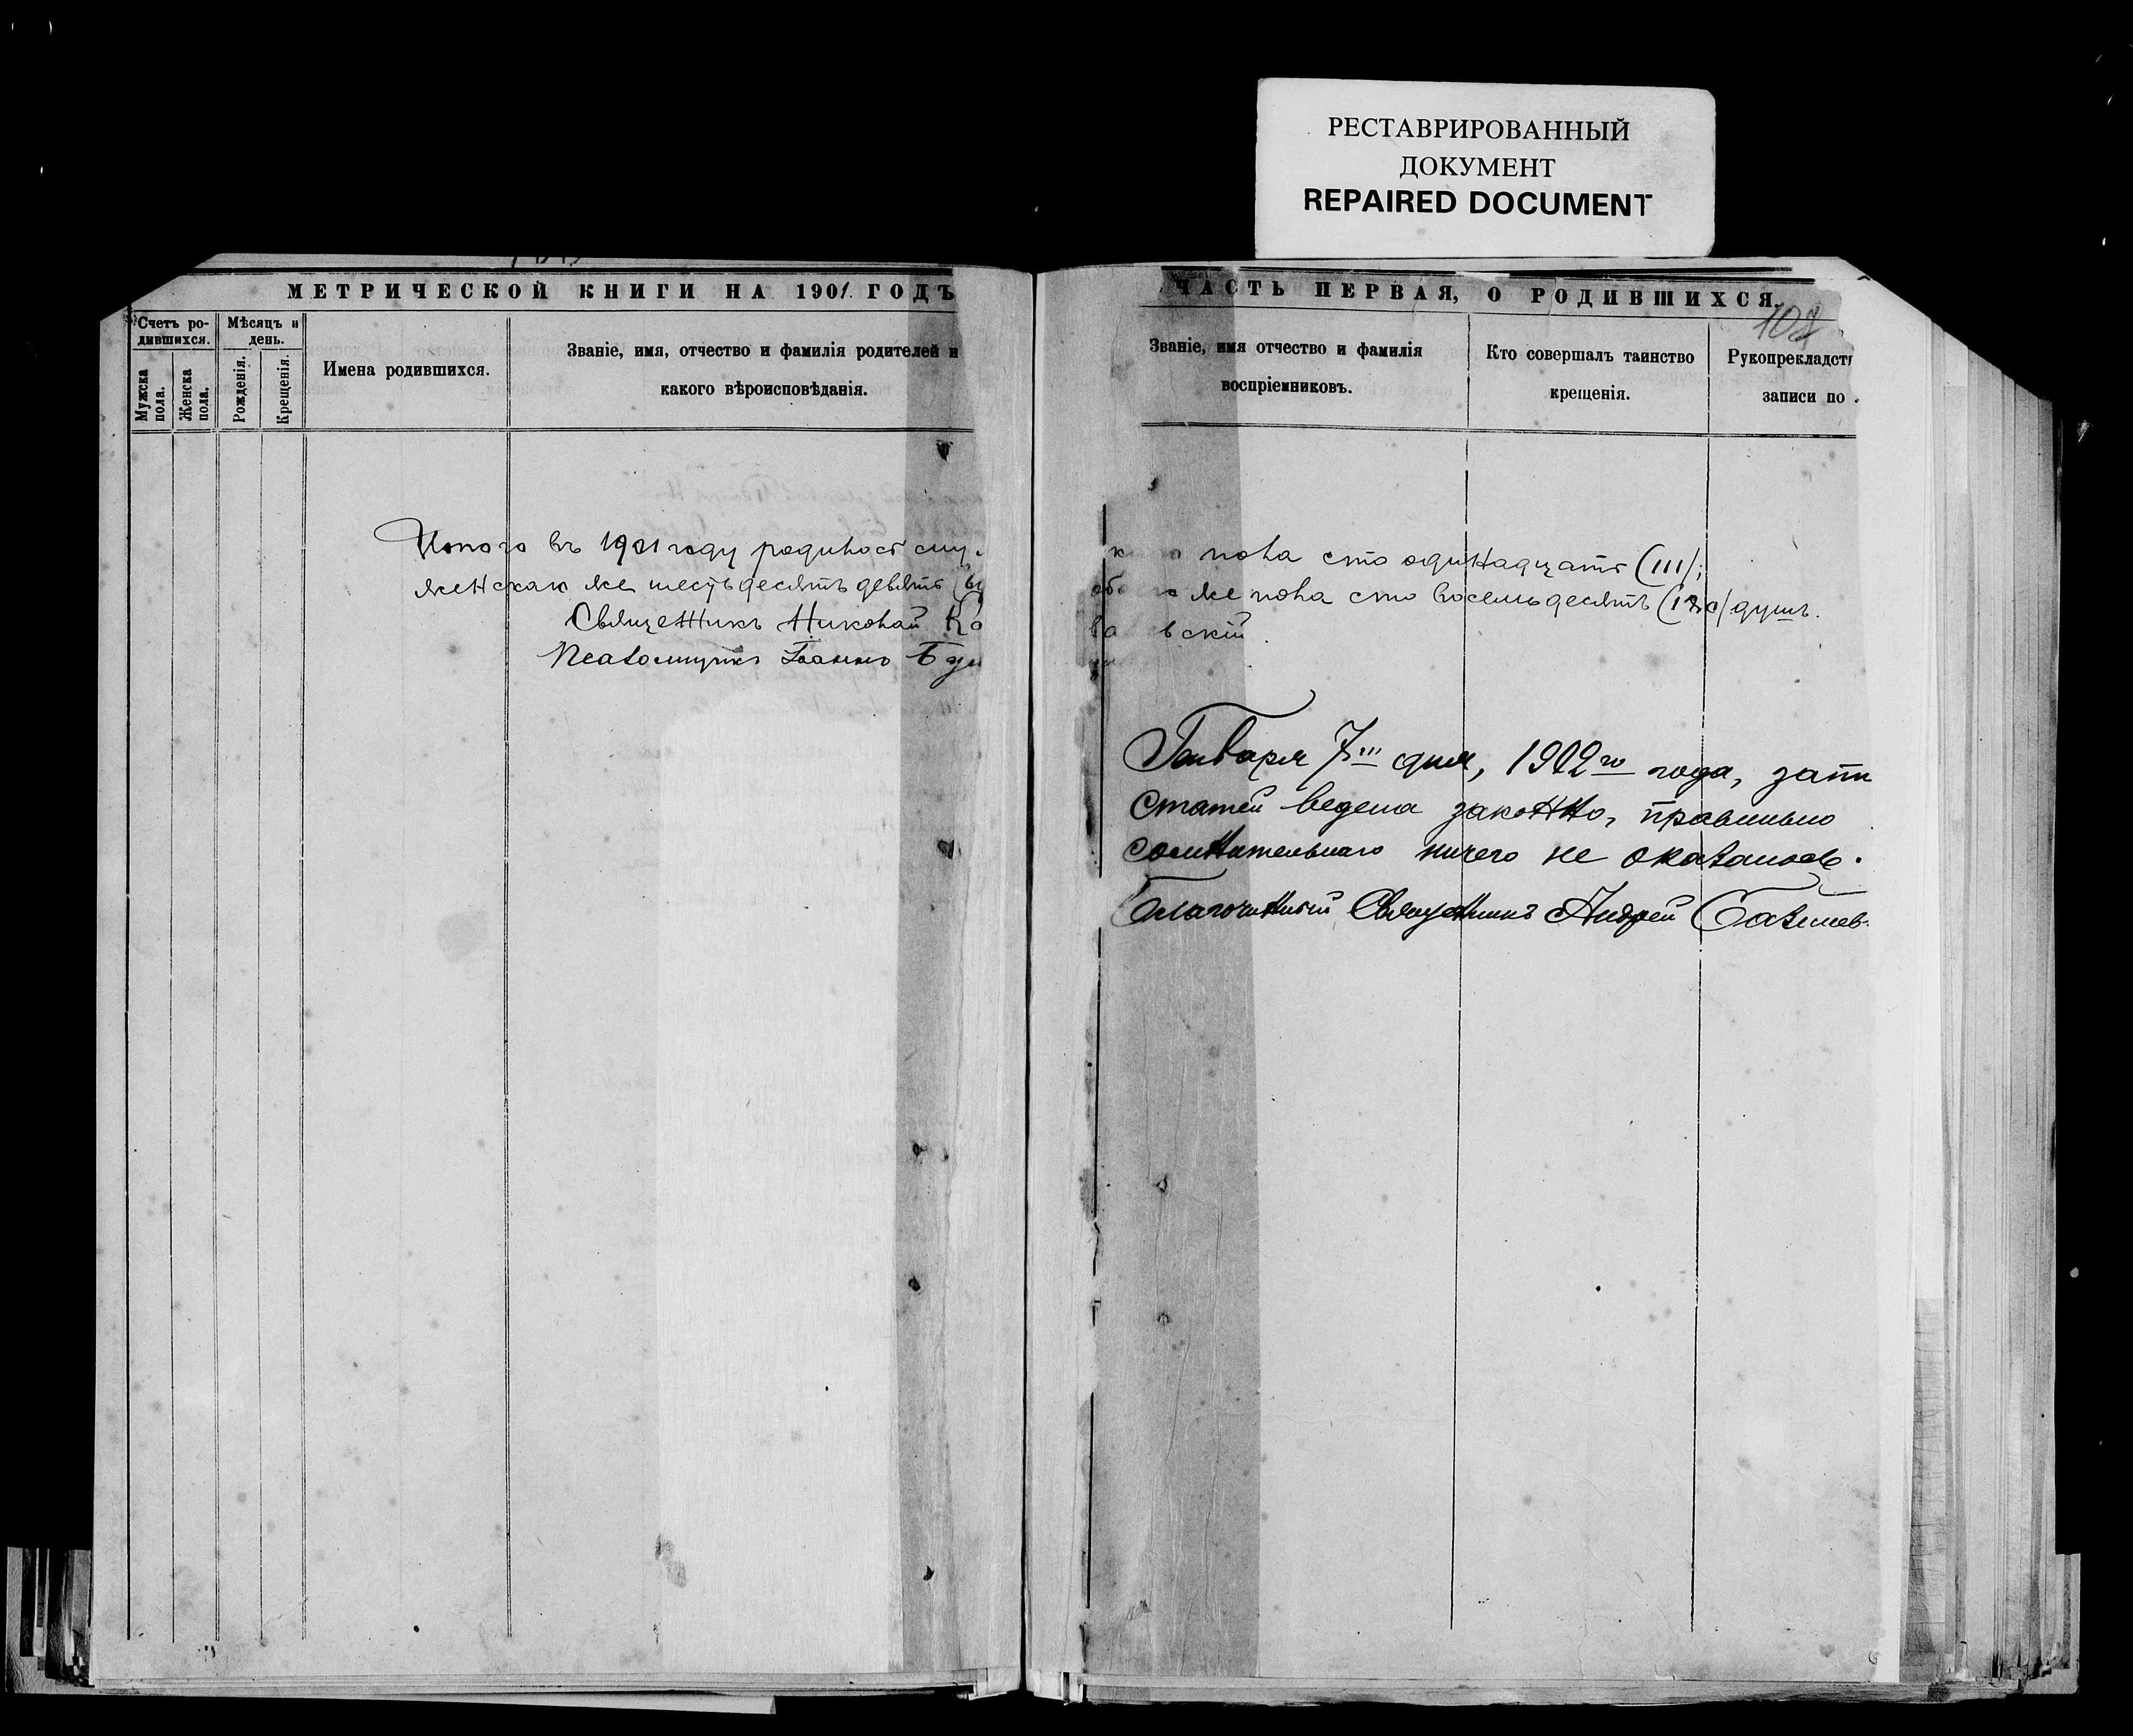 РЕСТАВРИРОВАННЫЙ
ДОКУМЕНТ
REPAIRED DOCUMENT
МЕТРИЧЕСКОЙ КНИГИ НА 1901 ГОДЪ
Счетъ ро-
дившихся.
Мужска
пола.
Женска
пола.
Мѣсяцъ и
день.
Рожденія.
Крещенія.
Имена родившихся.
Званіе, имя, отчество и фамилія родителей и
какого вѣроисповѣданія.
Итого въ 1901 году родилось муж
женскаго же шестьдесятъ девять (6
Священникъ Николай Ко
Псаломщикъ Іоаннъ
ЧАСТЬ ПЕРВАЯ, О РОДИВШИХСЯ.
108
Званіе, имя отчество и фамилія
воспріемниковъ.
Кто совершалъ таинство
крещенія.
Рукоприкладст
записи по
пола сто одинадцать (111);
же пола сто восемьдесятъ (180) душъ.
вскій.
Января 7го дня, 1902го года, запи
статей ведена законно, правильно
сомнительнаго ничего не оказалось.
Благочинный Священникъ Андрей